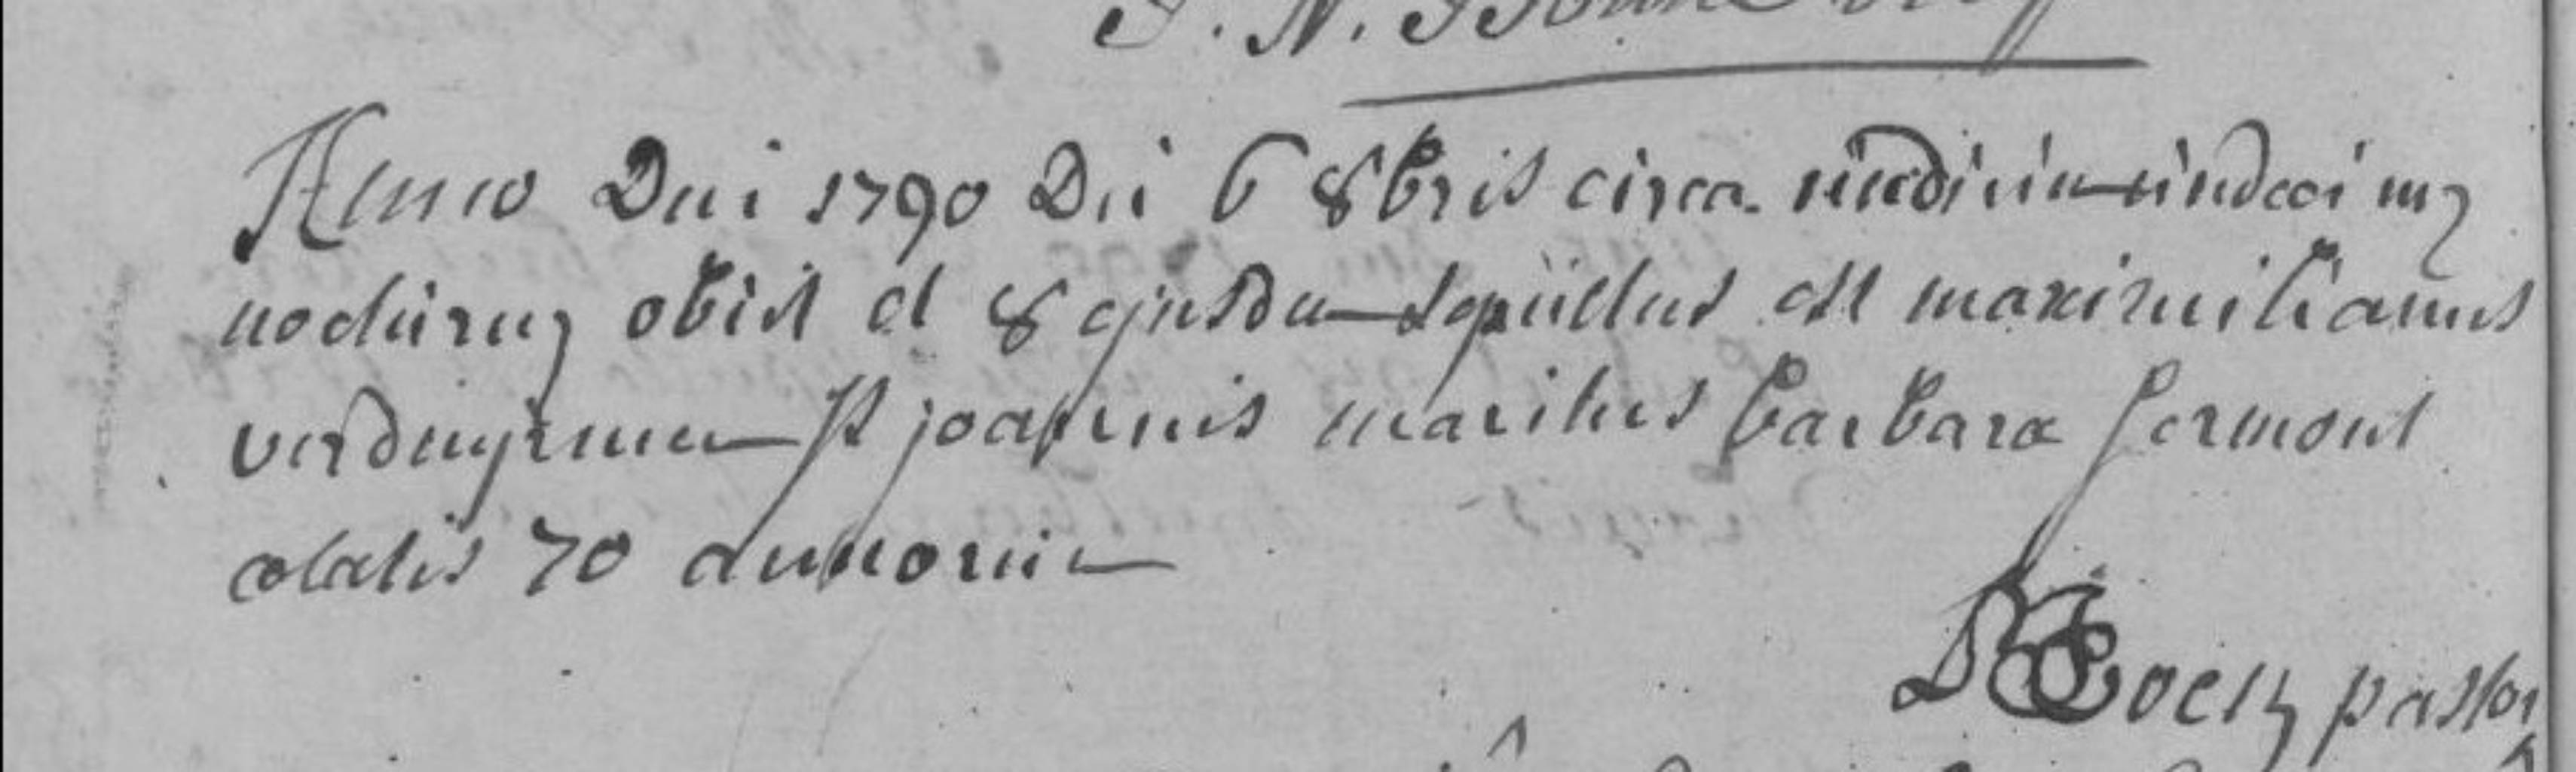 Anno Dni 1790 Die 6 8bris circa mediam undecimam
nocturnam obiit et 8 ejusdem sepultus est maximilianus
joannis maritus barbara sermont
ætatis 70 annorum
pastor